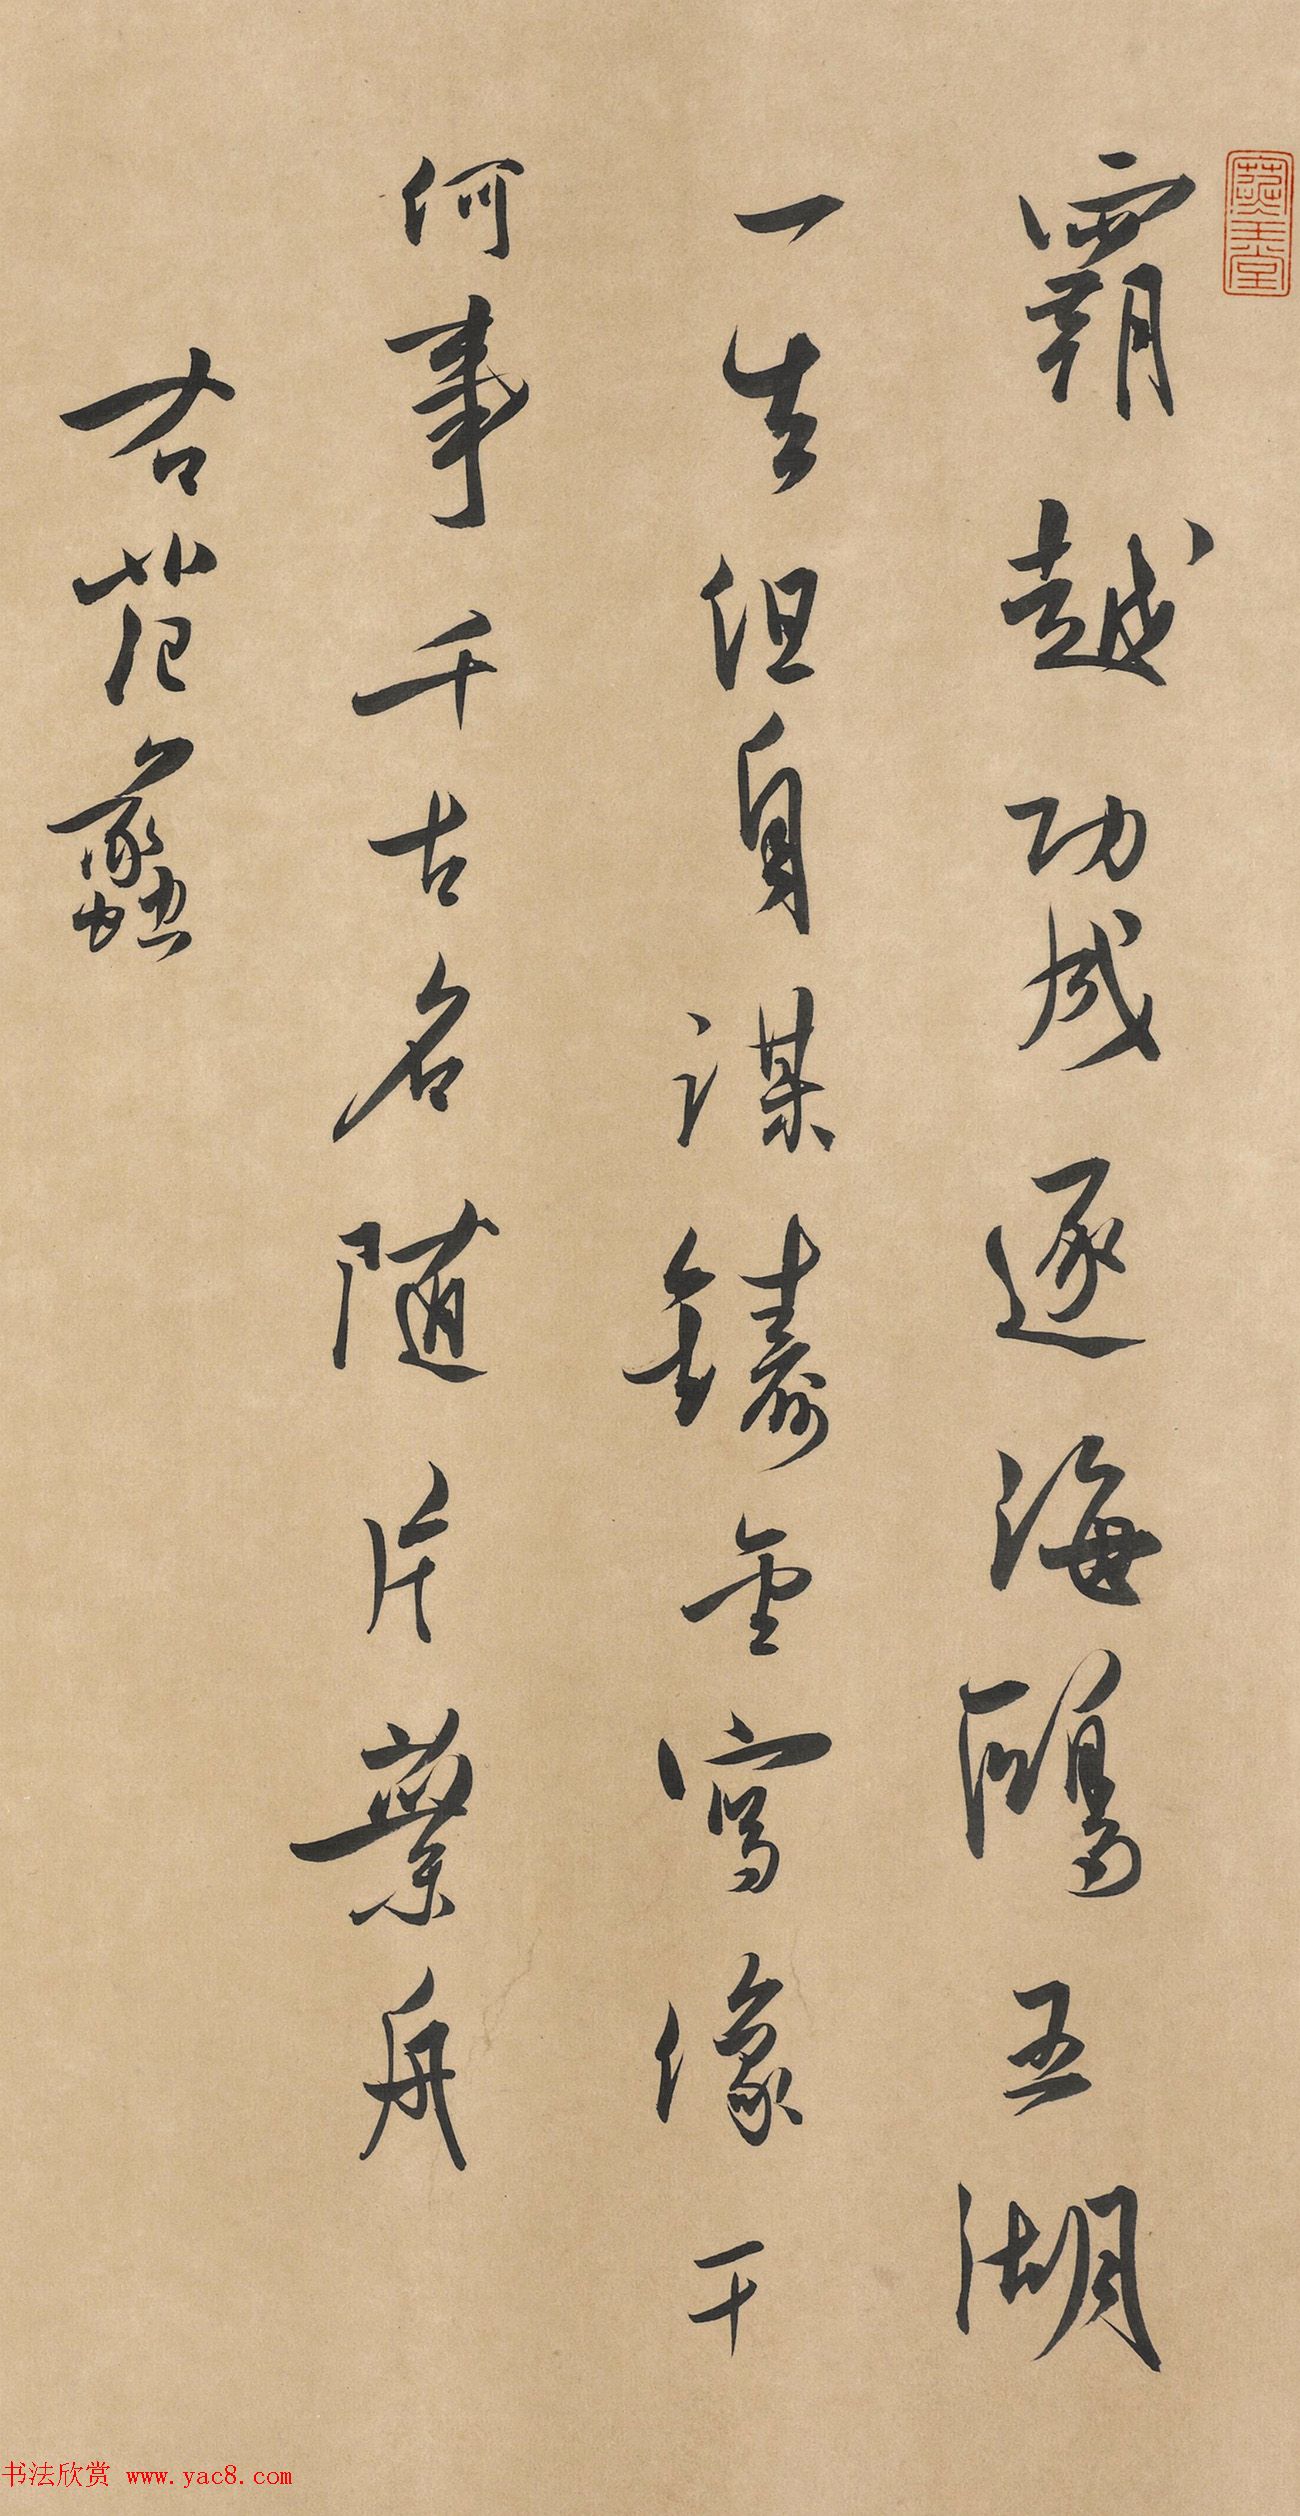 霸越功成逐海鷗五湖
一生但自謀鑄金寫像干
何事千古名隨片葉舟
右范蠡
書法欣賞 www.yac8.com